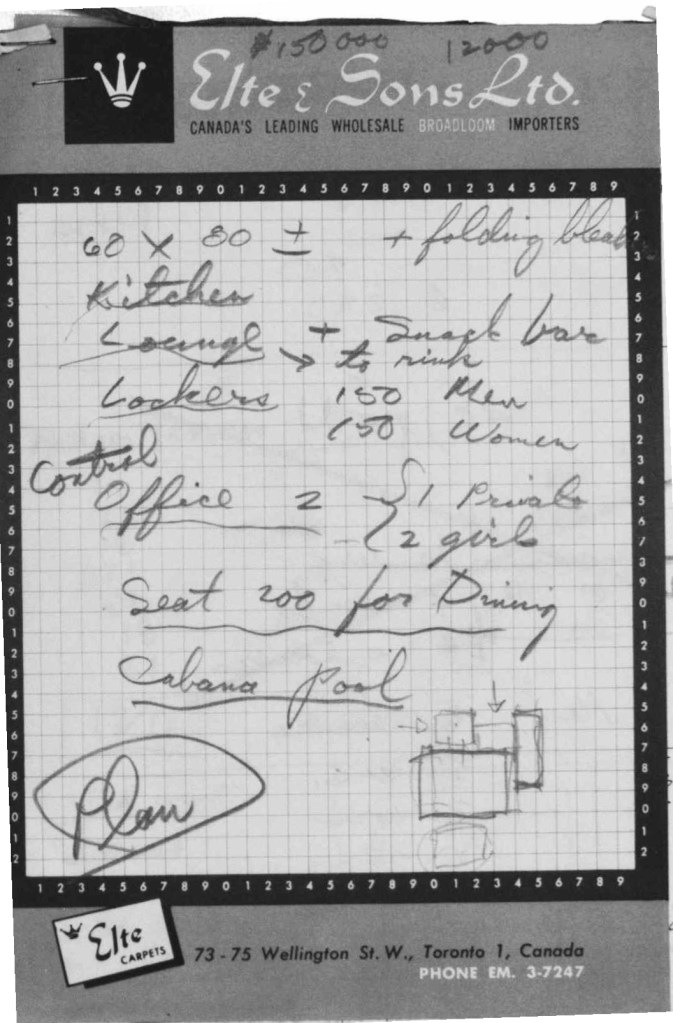 $150000 12000
Elte & Sons Ltd.
CANADA'S LEADING WHOLESALE BROADLOOM IMPORTERS
1 2 3 4 5 6 7 8 9 0 1 2 3 4 5 6 7 8 9 0 1 2 3 4 5 6 7 8 9
60 X 80 ± + folding
Kitchen
Lounge + Snack bar
to rink
Lockers 150 Men
150 Women
Control
Office 2 { 1 Private
2 girls
Seat 200 for Dining
Cabana Pool
Plan
1 2 3 4 5 6 7 8 9 0 1 2 3 4 5 6 7 8 9 0 1 2 3 4 5 6 7 8 9
Elte
CARPETS
73 - 75 Wellington St. W., Toronto 1, Canada
PHONE EM. 3-7247